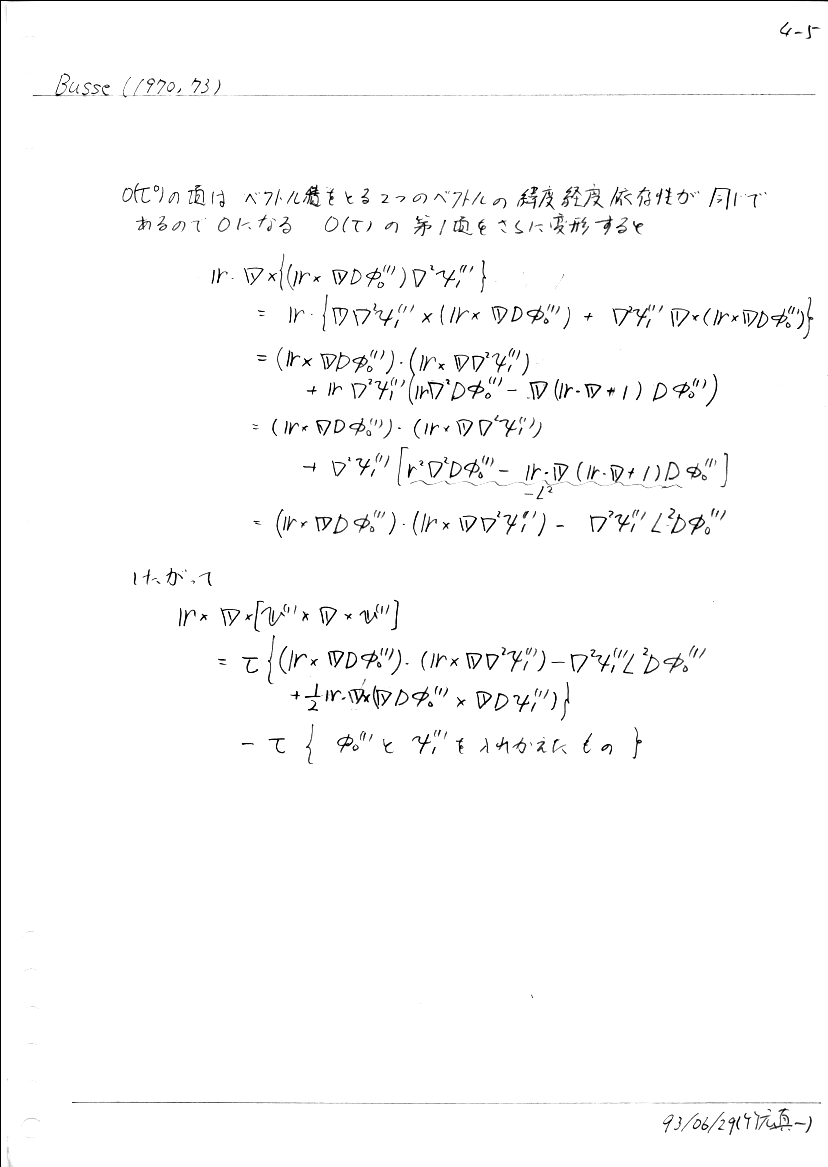 4-5
Busse (1970, 73)
O(τ⁰)の項は ベクトル積をとる2つのベクトルの 緯度経度依存性が 同じで
あるので 0になる O(τ) の 第1項をさらに変形すると
𝕣·∇×{(𝕣×∇Dφ₀⁽¹⁾)∇²ψ₁⁽¹⁾}
= 𝕣·{∇∇²ψ₁⁽¹⁾×(𝕣×∇Dφ₀⁽¹⁾) + ∇²ψ₁⁽¹⁾∇×(𝕣×∇Dφ₀⁽¹⁾)}
= (𝕣×∇Dφ₀⁽¹⁾)·(𝕣×∇∇²ψ₁⁽¹⁾)
+ 𝕣∇²ψ₁⁽¹⁾(𝕣∇²Dφ₀⁽¹⁾ − ∇(𝕣·∇+1)Dφ₀⁽¹⁾)
= (𝕣×∇Dφ₀⁽¹⁾)·(𝕣×∇∇²ψ₁⁽¹⁾)
+ ∇²ψ₁⁽¹⁾[r²∇²Dφ₀⁽¹⁾ − 𝕣·∇(𝕣·∇+1)Dφ₀⁽¹⁾]
−L²
= (𝕣×∇Dφ₀⁽¹⁾)·(𝕣×∇∇²ψ₁⁽¹⁾) − ∇²ψ₁⁽¹⁾L²Dφ₀⁽¹⁾
したがって
𝕣×∇×[𝕦⁽¹⁾×∇×𝕦⁽¹⁾]
= τ{(𝕣×∇Dφ₀⁽¹⁾)·(𝕣×∇∇²ψ₁⁽¹⁾) − ∇²ψ₁⁽¹⁾L²Dφ₀⁽¹⁾
+ ½𝕣·∇×(∇Dφ₀⁽¹⁾×∇Dψ₁⁽¹⁾)}
− τ{ φ₀⁽¹⁾と ψ₁⁽¹⁾を入れかえたもの }
93/06/29(竹広真一)